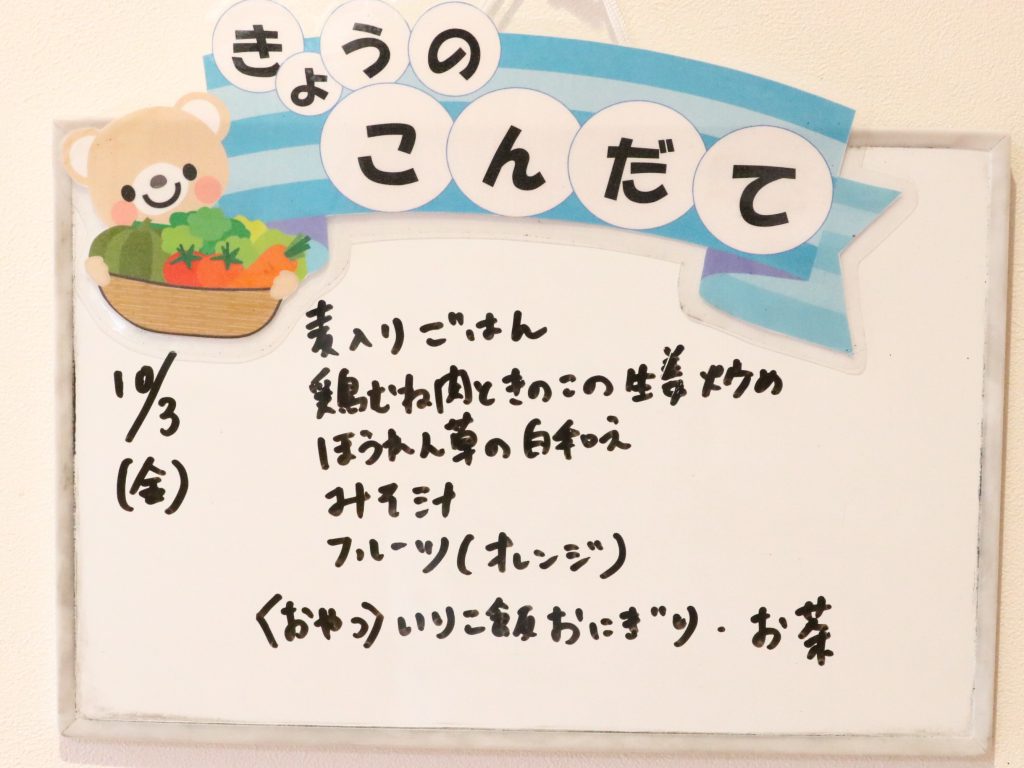 きょうの
こんだて
10/3
(金)
麦入りごはん
鶏むね肉ときのこの生姜炒め
ほうれん草の白和え
みそ汁
フルーツ(オレンジ)
〈おやつ〉いりこ飯おにぎり・お茶